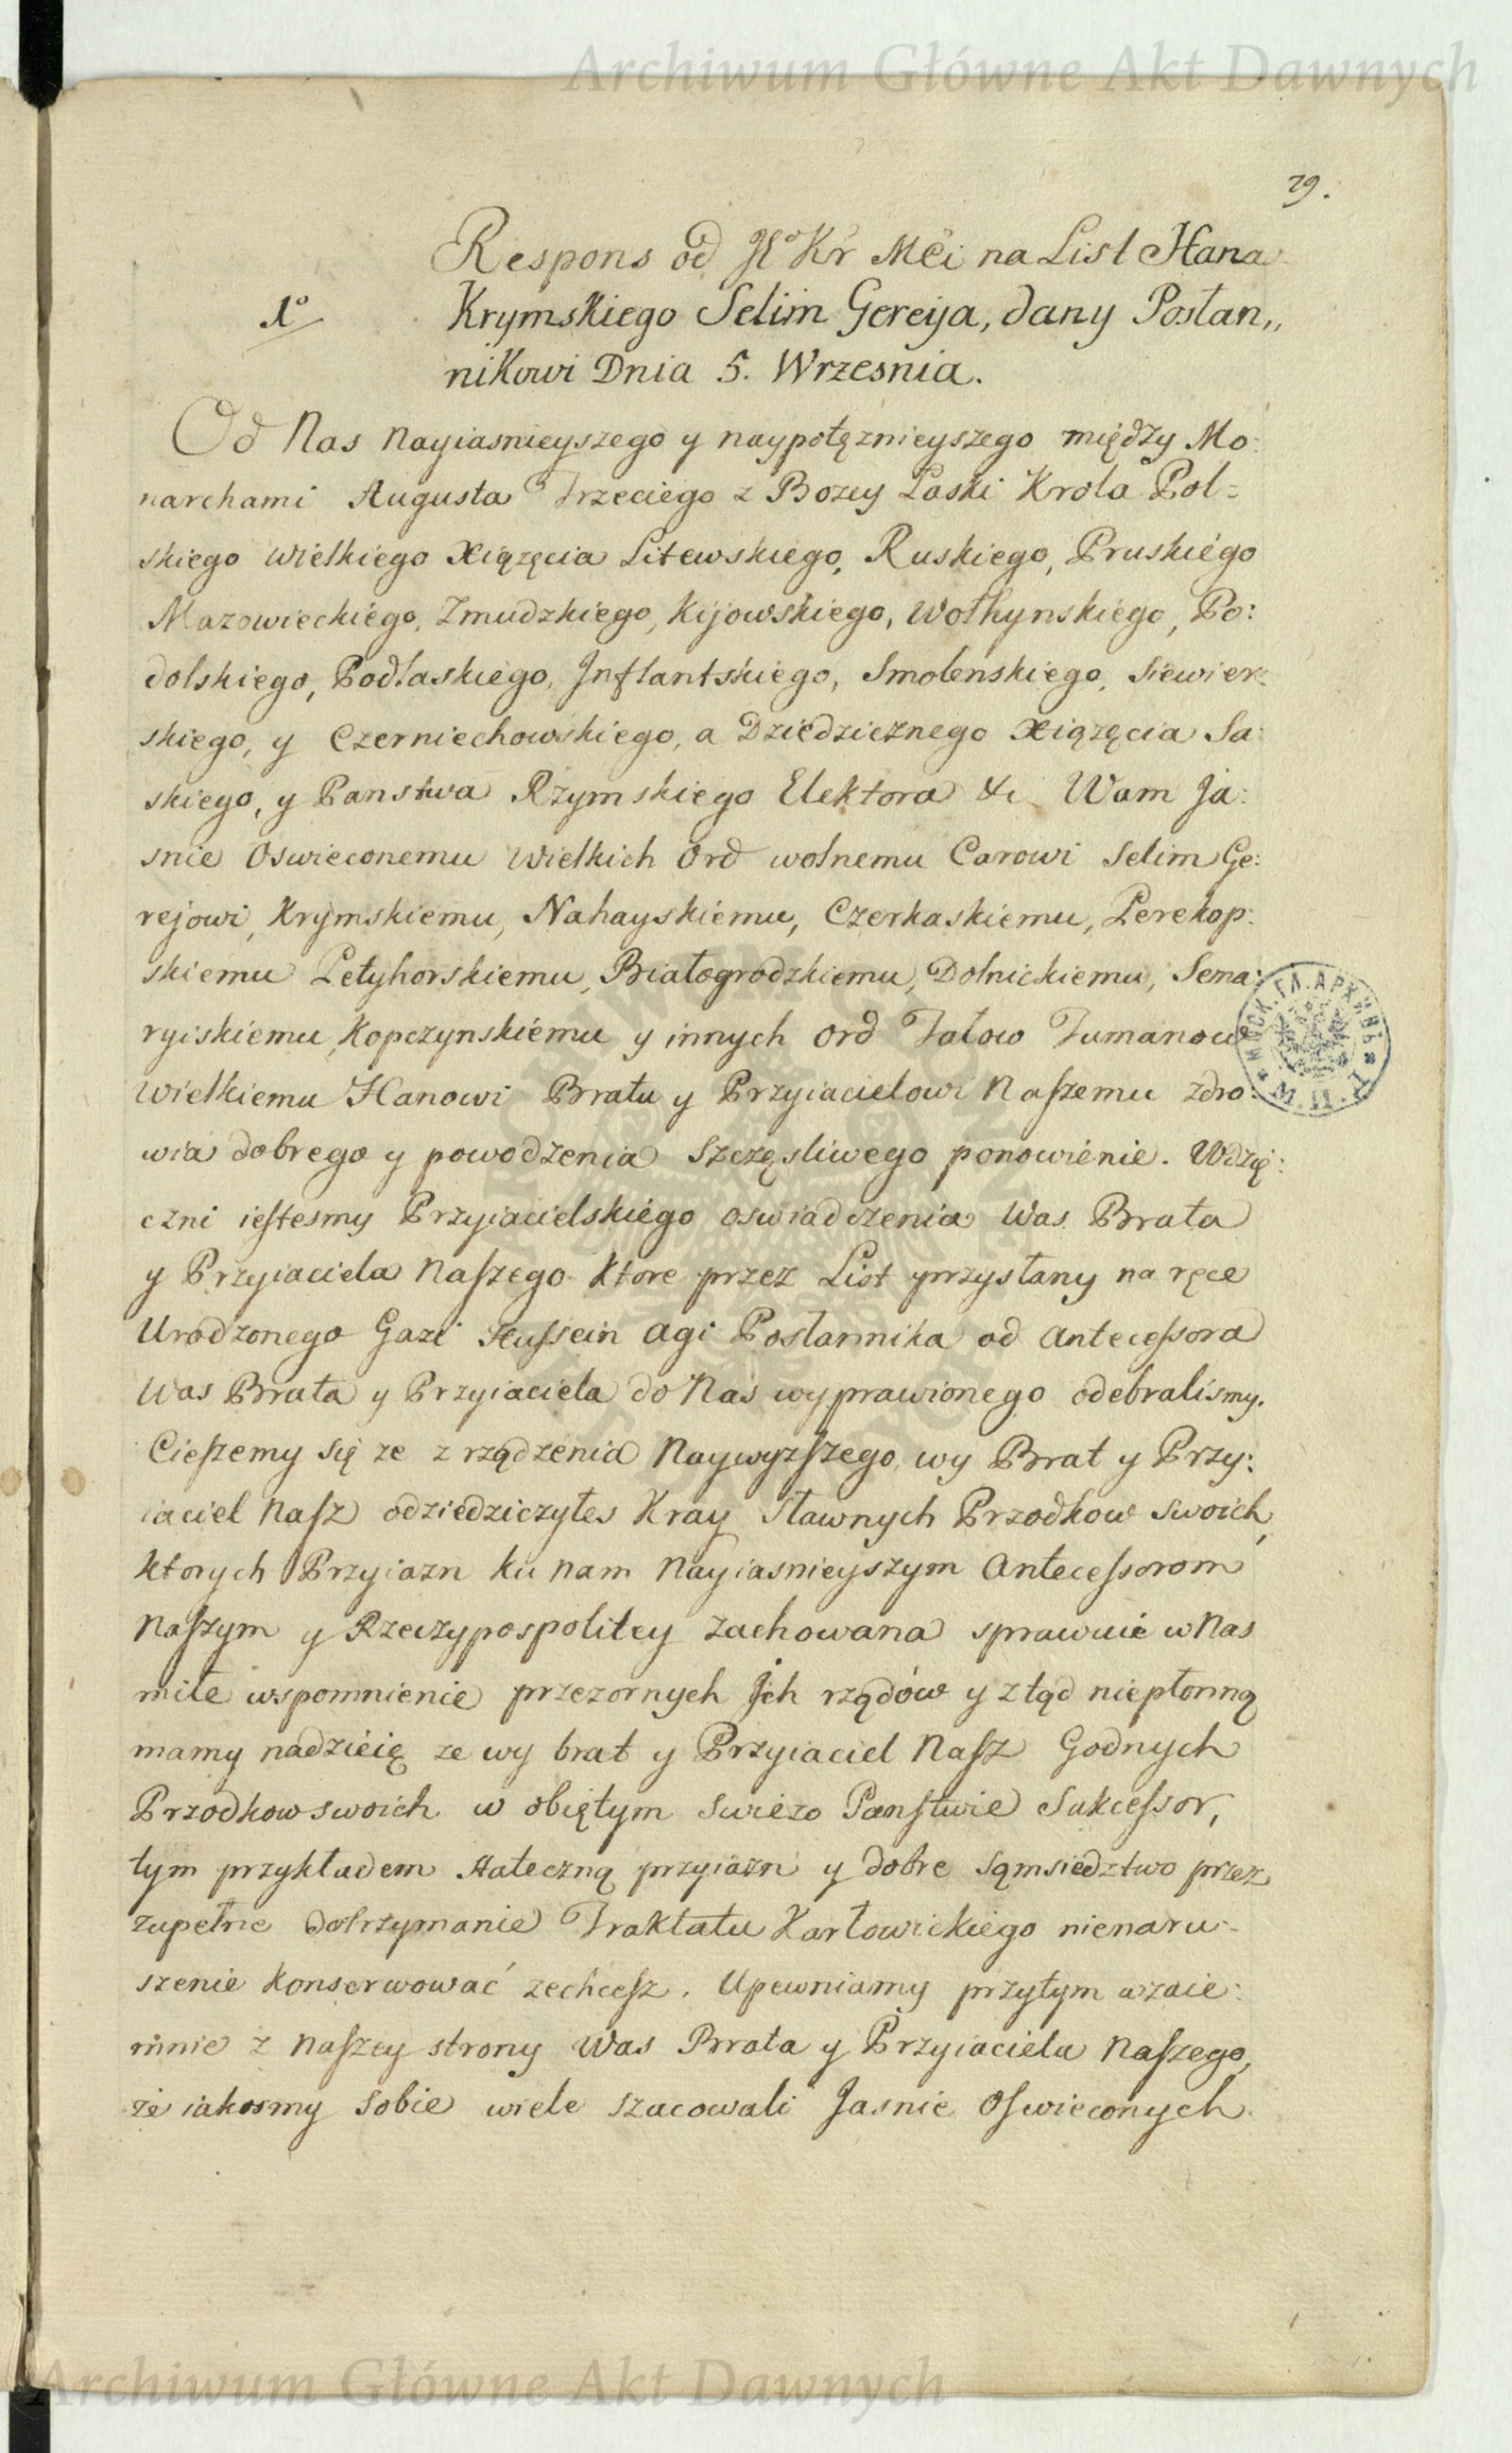 Archiwum Główne Akt Dawnych
29.
Respons od Kr Mci na List Hana
1º Krymskiego Selim Gereija, dany Posłan,,
nikowi Dnia 5. Wrzesnia.
Od Nas Nayiasnieyszego y naypotęznieyszego między Mo:
narchami Augusta Trzeciego z Bozey Łaski Krola Pol=
skiego wielkiego Xiązęcia Litewskiego, Ruskiego, Pruskiego
Mazowieckiego, Zmudzkiego, Kijowskiego, Wołhynskiego, Po:
dolskiego, Podlaskiego, Jnflantskiego, Smolenskiego, Siewier:
skiego, y Czerniechowskiego, a Dziedzicznego Xiązęcia Sa:
skiego, y Panstwa Rzymskiego Elektora &c Wam Ja:
snie Oswieconemu Wielkich Ord wolnemu Carowi Selim Ge:
rejowi, Krymskiemu, Nahayskiemu, Czerkaskiemu, Perekop:
skiemu Petyhorskiemu, Białogrodzkiemu, Dolnickiemu, Sema:
ryiskiemu, Kopczynskiemu y innych Ord Tatow Tumanow
Wielkiemu Hanowi Bratu y Przyiacielowi Naszemu zdro:
wia dobrego y powodzenia szczęsliwego ponowienie. Wdzię:
czni iestesmy Przyiacielskiego oswiadczenia Was Brata
y Przyiaciela Naszego ktore przez List przysłany na ręce
Urodzonego Gazi Hussein Agi Posłannika od Antecessora
Was Brata y Przyiaciela do Nas wyprawionego odebralismy.
Cieszemy się ze z rządzenia Naywyzszego wy Brat y Przy:
iaciel Nasz odziedziczyłes Kray sławnych Przodkow swoich,
ktorych Przyiazn ku nam Nayiasnieyszym Antecessorom
Naszym y Rzeczypospolitey zachowana sprawuie w Nas
miłe wspomnienie przezornych Jch rządów y ztąd niepłonną
mamy nadzieię ze wy brat y Przyiaciel Nasz Godnych
Przodkow swoich w obiętym swiezo Panstwie Sukcessor,
tym przykładem stateczną przyiazn y dobre sąmsiedztwo przez
zupełne dotrzymanie Traktatu Karłowickiego nienaru=
szenie konserwować zechcesz. Upewniamy przytym wzaie:
mnie z Naszey strony Was Brata y Przyiaciela Naszego,
że iakosmy sobie wiele szacowali Jasnie Oswieconych
МОСК.ГЛ.АРХИВЪ
М.И.Д.
Archiwum Główne Akt Dawnych